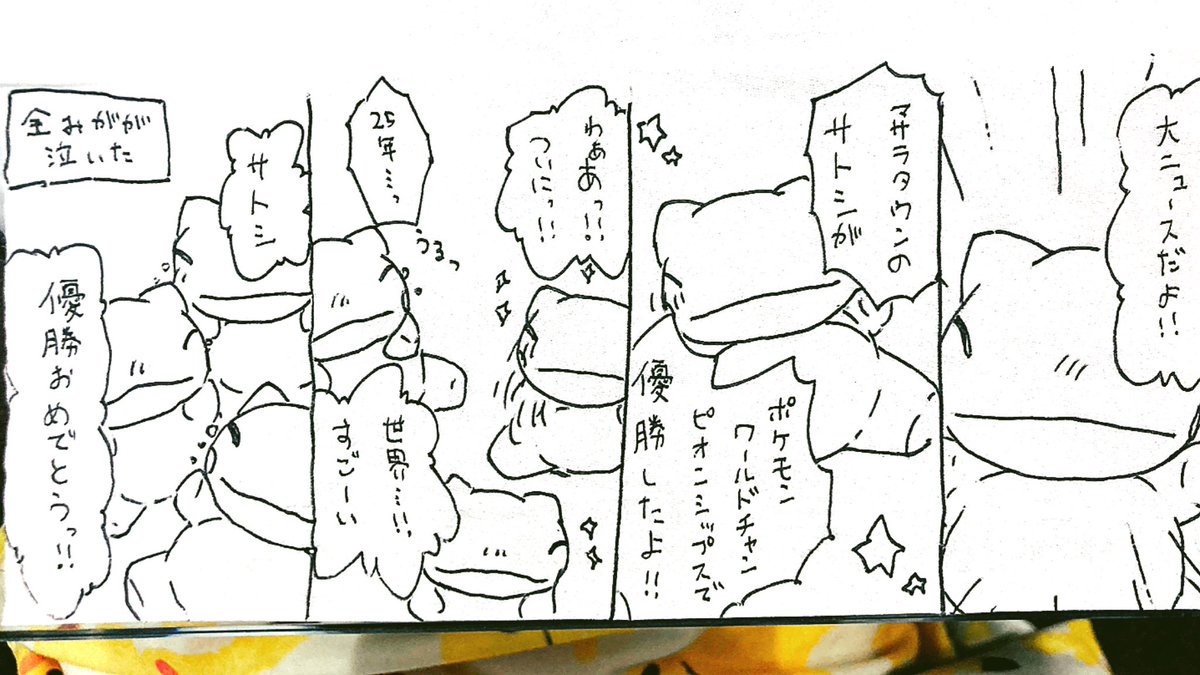 大ニュースだよ!!
マサラタウンの
サトシが
ポケモン
ワールドチャン
ピオンシップスで
優勝したよ!!
わぁあっ!!
ついにっ!!
25年…っ
うるっ
世界…!!
すごーい
サトシ
優勝おめでとうっ!!
全みがが
泣いた